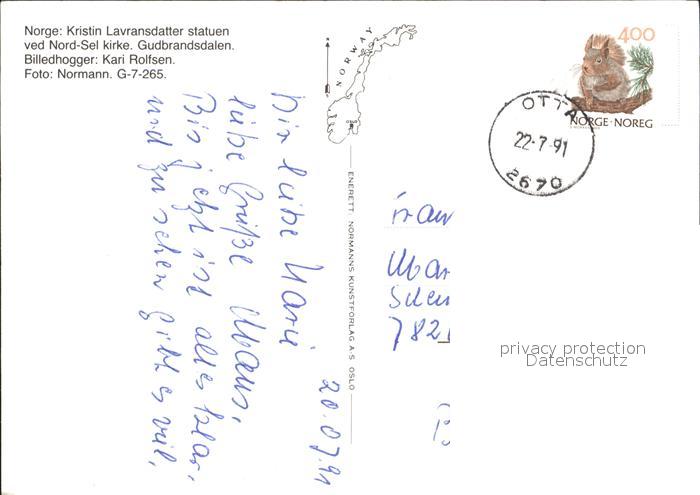 Norge: Kristin Lavransdatter statuen
ved Nord-Sel kirke. Gudbrandsdalen.
Billedhogger: Kari Rolfsen.
Foto: Normann. G-7-265.
NORWAY
400
NORGE·NOREG
OTTA
22-7-91
2670
ENERETT: NORMANNS KUNSTFORLAG A-S OSLO
20.07.91
liebe
liebe Grüße
Bis jetzt ist alles klar,
und zu sehen gibt es viel,
Frau
782
privacy protection
Datenschutz